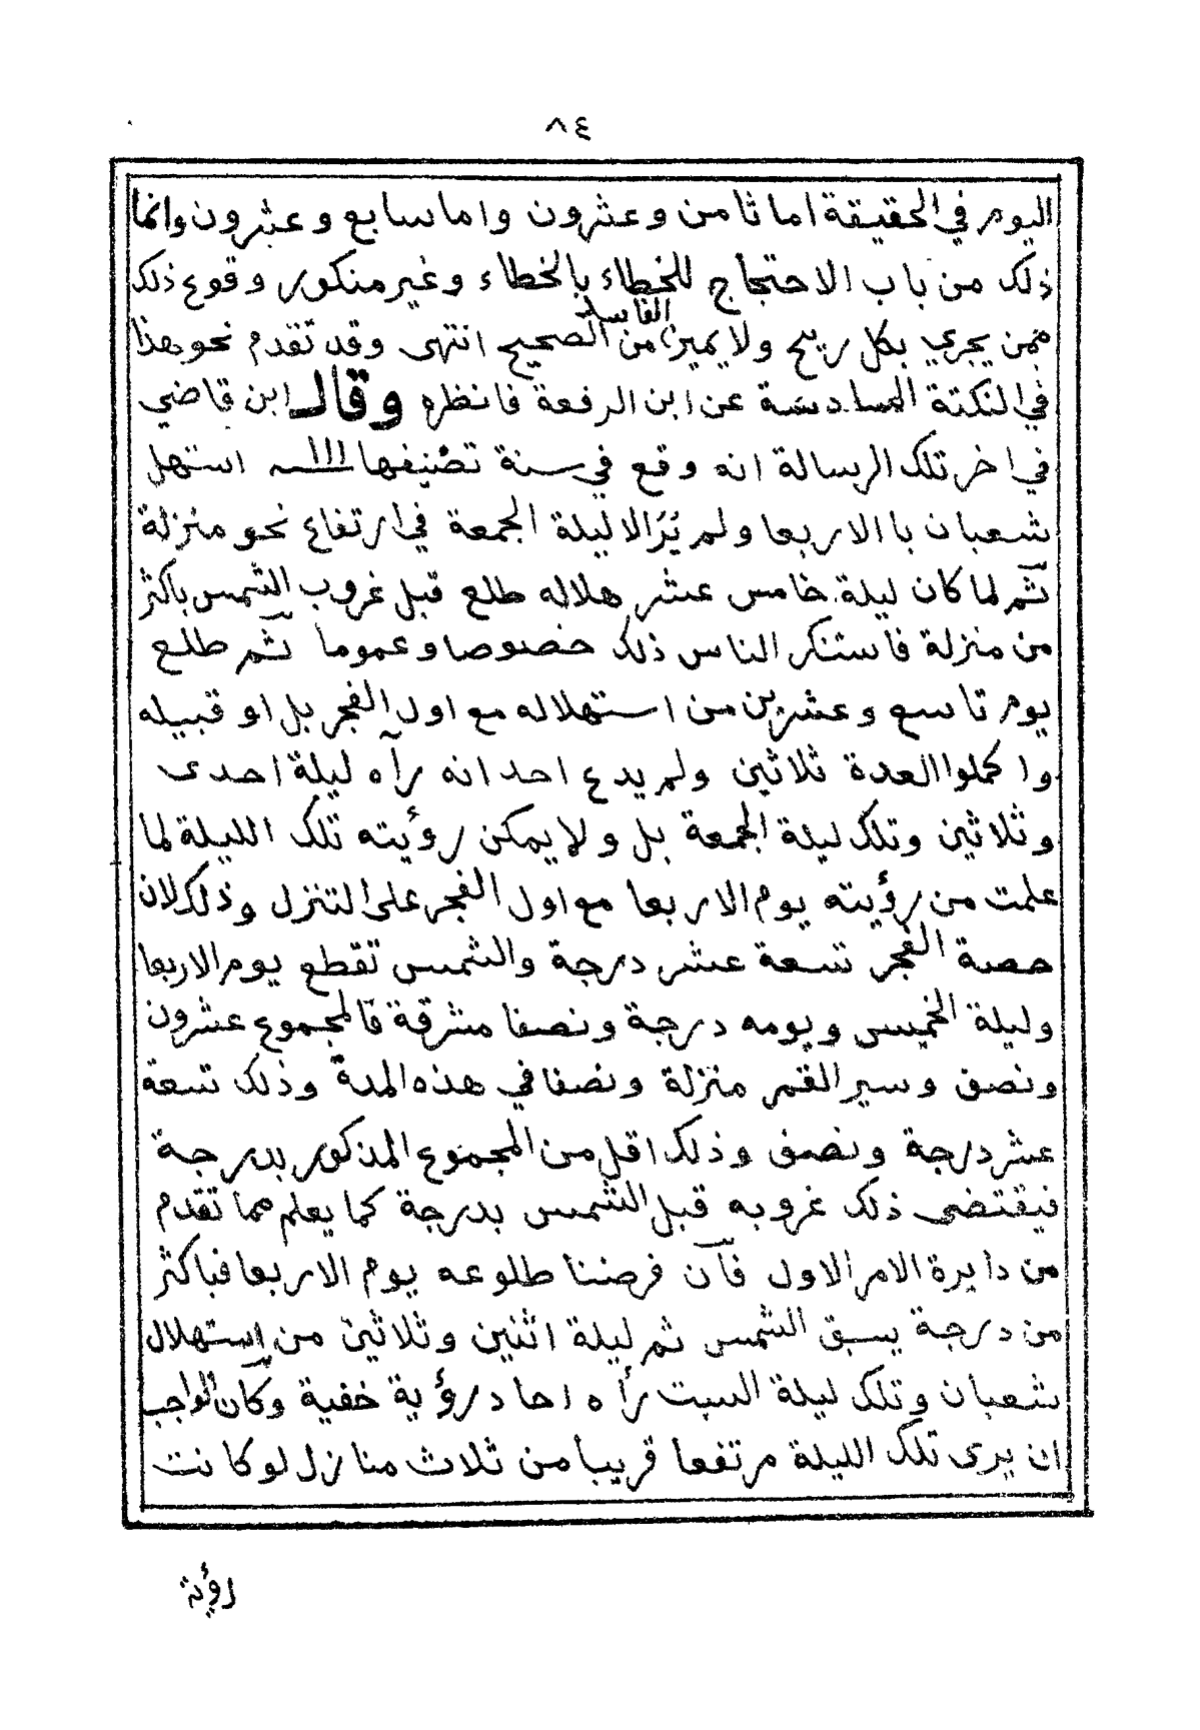 ٨٤
اليوم في الحقيقة اما ثامن وعشرون واما سابع وعشرون وانما
ذلك من باب الاحتجاج للخطاء بالخطاء وغير منكور وقوع ذلك
ممن يجري بكل ريح ولا يميز الفاسد من الصحيح انتهى وقد تقدم نحو هذا
في النكتة السادسة عن ابن الرفعة فانظره وقال ابن قاضي
في اخر تلك الرسالة انه وقع في سنة تصنيفها ١١١١ـه استهل
شعبان باالاربعا ولم يُرَ الا ليلة الجمعة في ارتفاع نحو منزلة
ثم لما كان ليلة خامس عشر هلاله طلع قبل غروب الشمس باكثر
من منزلة فاستنكر الناس ذلك خصوصا وعموما ثم طلع
يوم تاسع وعشرين من استهلاله مع اول الفجر بل او قبيله
واكملوا العدة ثلاثين ولم يدع احد انه رآه ليلة احدى
وثلاثين وتلك ليلة الجمعة بل ولا يمكن رؤيته تلك الليلة لما
علمت من رؤيته يوم الاربعا مع اول الفجر على التنزل وذلك لان
حصة الفجر تسعة عشر درجة والشمس تقطع يوم الاربعا
وليلة الخميس ويومه درجة ونصفا مشرقة فالمجموع عشرون
ونصف وسير القمر منزلة ونصفا في هذه المدة وذلك تسعة
عشر درجة ونصف وذلك اقل من المجموع المذكور بدرجة
فيقتضي ذلك غروبه قبل الشمس بدرجة كما يعلم مما تقدم
من دايرة الامر الاول فآن فرضنا طلوعه يوم الاربعا فباكثر
من درجة يسبق الشمس ثم ليلة اثنين وثلاثين من استهلال
شعبان وتلك ليلة السبت رأه احاد رؤية خفية وكان الواجب
ان يرى تلك الليلة مرتفعا قريبا من ثلاث منازل لو كانت
رؤية